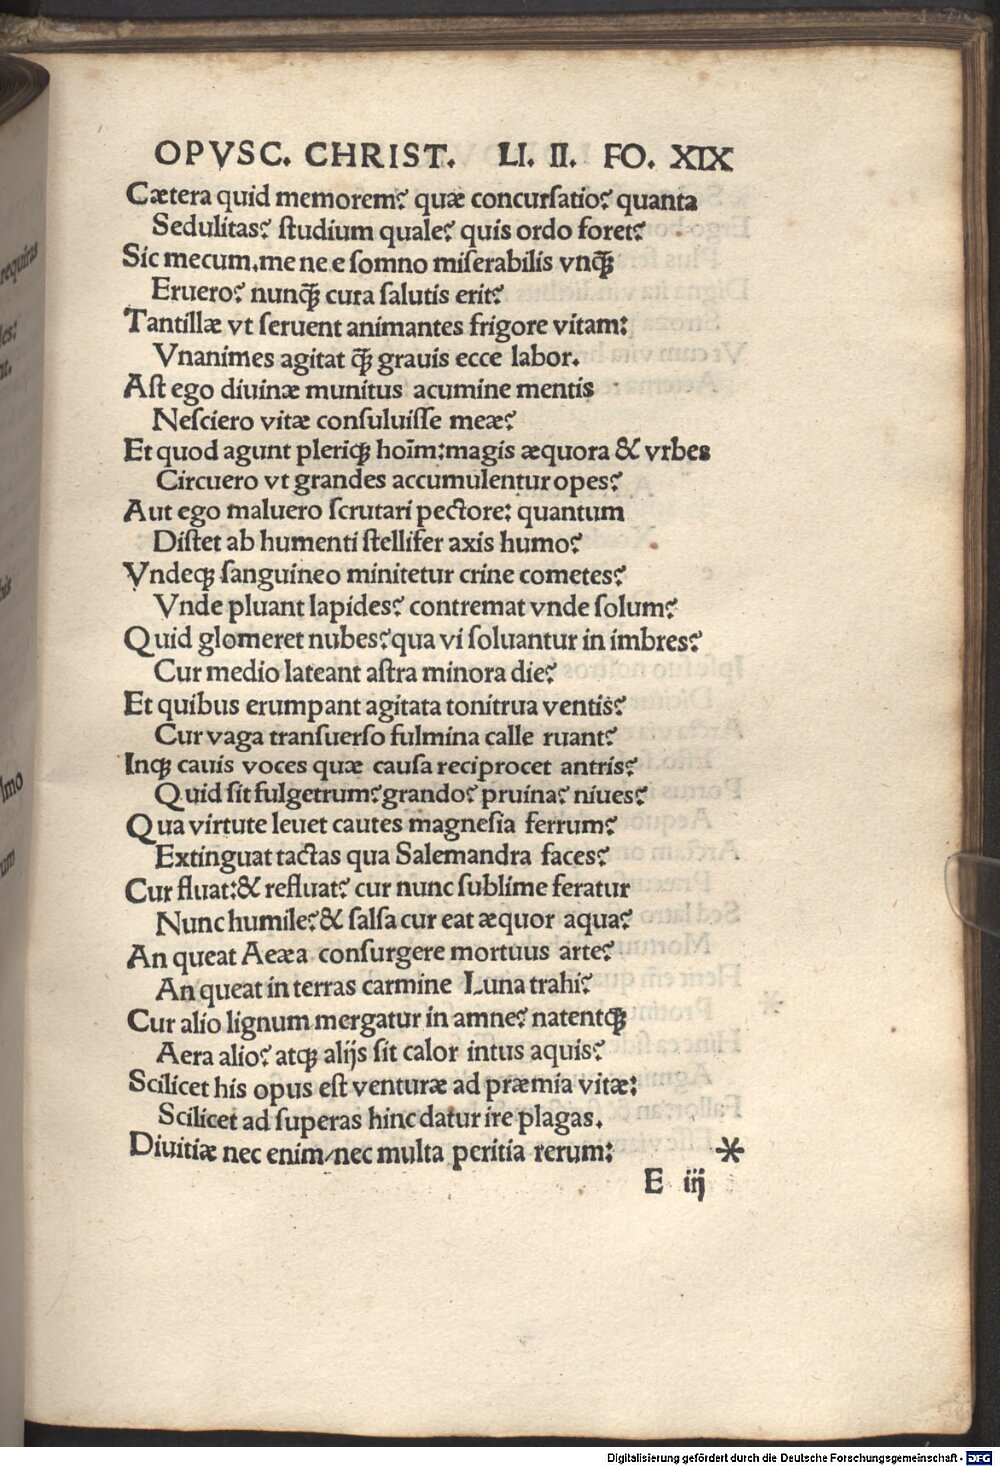 OPVSC. CHRIST. LI. II. FO. XIX
Cætera quid memorem? quæ concurſatio? quanta
Sedulitas? ſtudium quale? quis ordo foret?
Sic mecum. me ne e ſomno miſerabilis vnꝗ̃
Eruero? nunꝗ̃ cura ſalutis erit?
Tantillæ vt ſeruent animantes frigore vitam:
Vnanimes agitat ꝗ̃ grauis ecce labor.
Aſt ego diuinæ munitus acumine mentis
Neſciero vitæ conſuluiſſe meæ?
Et quod agunt pleriqꝫ hoim̄: magis æquora & vrbes
Circuero vt grandes accumulentur opes?
Aut ego maluero ſcrutari pectore: quantum
Diſtet ab humenti ſtellifer axis humo?
Vndeqꝫ ſanguineo minitetur crine cometes?
Vnde pluant lapides? contremat vnde ſolum?
Quid glomeret nubes? qua vi ſoluantur in imbres?
Cur medio lateant aſtra minora die?
Et quibus erumpant agitata tonitrua ventis?
Cur vaga tranſuerſo fulmina calle ruant?
Inqꝫ cauis voces quæ cauſa reciprocet antris?
Quid ſit fulgetrum? grando? pruina? niues?
Qua virtute leuet cautes magneſia ferrum?
Extinguat tactas qua Salemandra faces?
Cur fluat: & refluat? cur nunc ſublime feratur
Nunc humile? & ſalſa cur eat æquor aqua?
An queat Aeæa conſurgere mortuus arte?
An queat in terras carmine Luna trahi?
Cur alio lignum mergatur in amne? natentqꝫ
Aera alio? atqꝫ alijs ſit calor intus aquis?
Scilicet his opus eſt venturæ ad præmia vitæ:
Scilicet ad ſuperas hinc datur ire plagas.
Diuitiæ nec enim/nec multa peritia rerum: *
E iij
requiras
les:
nt.
bis
lmo
um
Digitalisierung gefördert durch die Deutsche Forschungsgemeinschaft - DFG